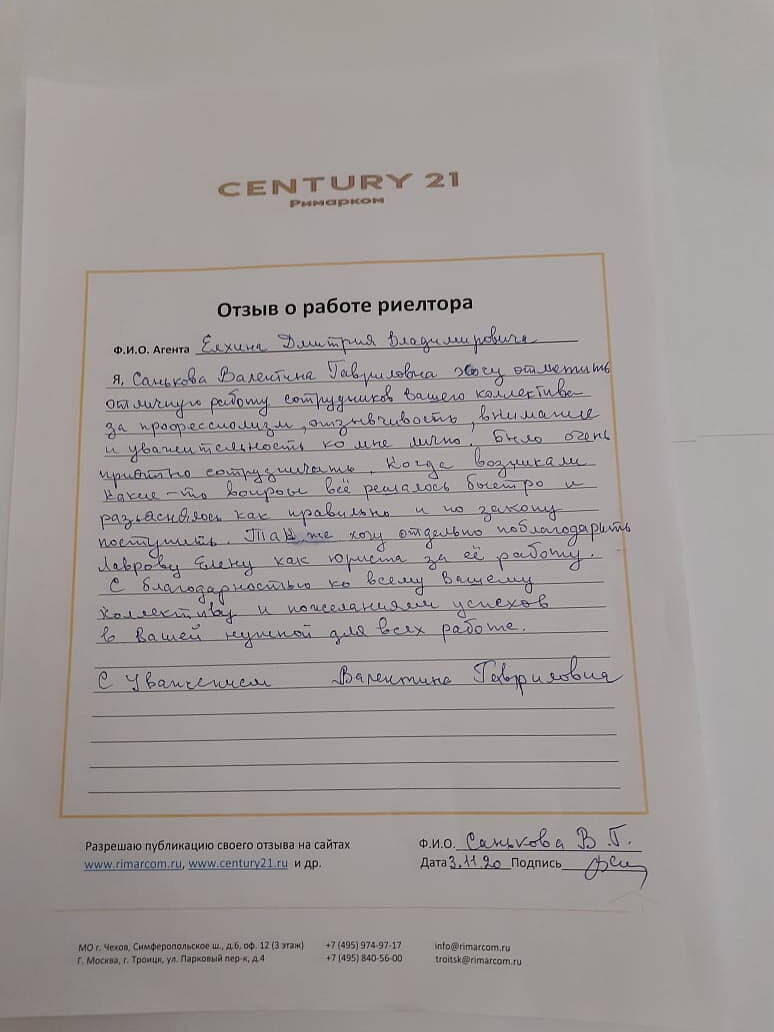 CENTURY 21
Римарком
Отзыв о работе риелтора
Ф.И.О. Агента Елхина Дмитрия Владимировича
Я, Санькова Валентина Гавриловна хочу отметить
отличную работу сотрудников вашего коллектива
за профессиолизм, отзывчивость, внимание
и уважительность ко мне лично. Было очень
приятно сотрудничать. Когда возникали
какие-то вопросы всё решалось быстро и
разъяснялось как правильно и по закону
поступить. Так же хочу отдельно поблагодарить
Лаврову Елену как юриста за её работу.
С благодарностью ко всему Вашему
коллективу и пожеланиям успехов
в Вашей нужной для всех работе.
С Уважением Валентина Гавриловна
Разрешаю публикацию своего отзыва на сайтах
www.rimarcom.ru, www.century21.ru и др.
Ф.И.О. Санькова В.Г.
Дата 3.11.20 Подпись
МО г. Чехов, Симферопольское ш., д.6, оф. 12 (3 этаж) +7 (495) 974-97-17 info@rimarcom.ru
Г. Москва, г. Троицк, ул. Парковый пер-к, д.4 +7 (495) 840-56-00 troitsk@rimarcom.ru